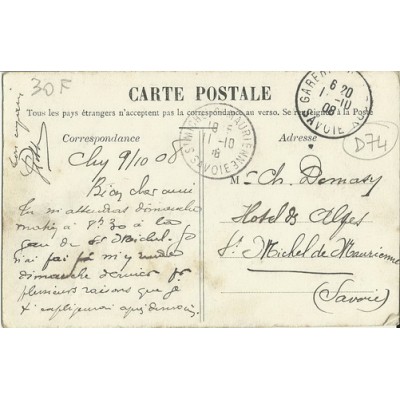 30F
CARTE POSTALE
Tous les pays étrangers n'acceptent pas la correspondance au verso. Se renseigner à la Poste
Correspondance
Adresse
6 20
10
08
SAVOIE
D74
11 -10
SAVOIE
9/10 08
Bien cher ami
Tu m'attendras dimanche
matin à 8h30 à la
gare de St Michel. Je
n'ai pas
dimanche dernier pr
plusieurs raisons que je
t'expliquerai après dimanche
Mr Ch. Demasy
Hotel des Alpes
St Michel de Maurienne
(Savoie)